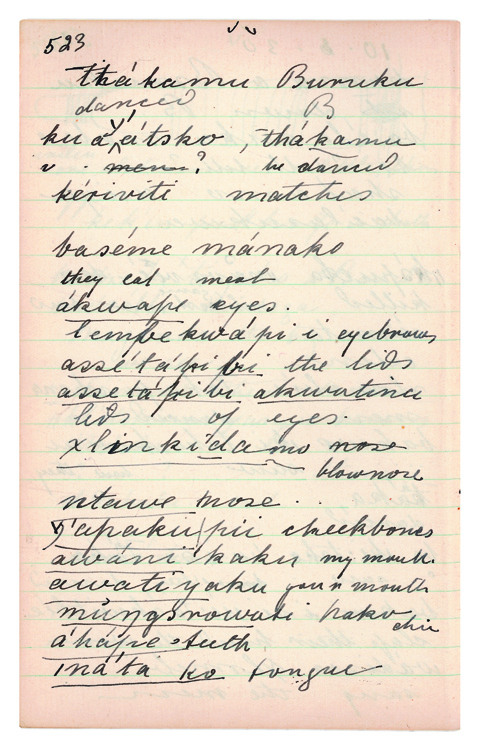 523
thákamu Buruku
danced B
ku á átsko, thákamu
? he danced
kériviti matches
baséme mánako
they eat meat
ákwape eyes.
tembekwápi i eyebrows
assétápribi the lids
assetápribi akwatina
lids of eyes.
xlinkidamo nose
blownose
ntawe nose
ŋapaku pii cheekbones
awáni kaku my mouth.
awatiyaku your mouth
müngsrowati hako
chin
áhápe teeth
ináta ko tongue